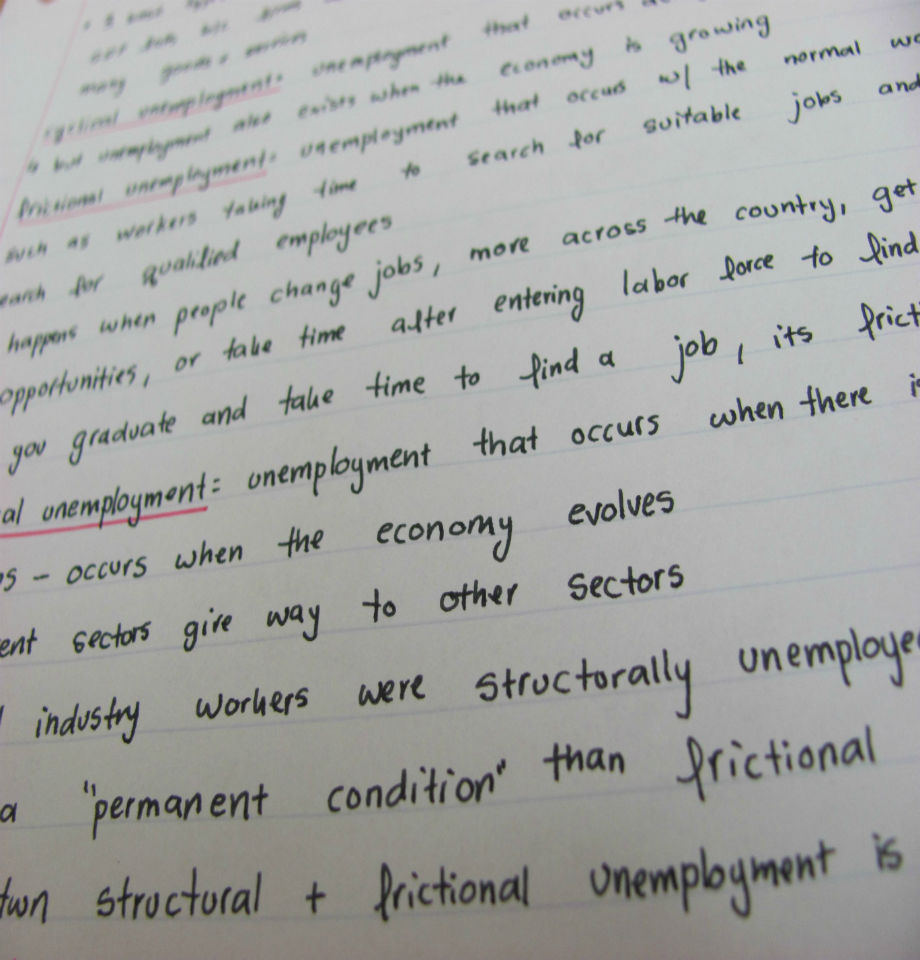 many goods + services
cyclical unemployment: unemployment that occurs
↳ but unemployment also exists when the economy is growing
frictional unemployment: unemployment that occurs w/ the normal
such as workers taking time to search for suitable jobs and
earch for qualified employees
happens when people change jobs, more across the country, get
opportunities, or take time after entering labor force to find
you graduate and take time to find a job, its frict
al unemployment: unemployment that occurs when there is
os - occurs when the economy evolves
ent sectors give way to other sectors
industry workers were structorally unemploye
a "permanent condition" than frictional
twn structural + frictional unemployment is